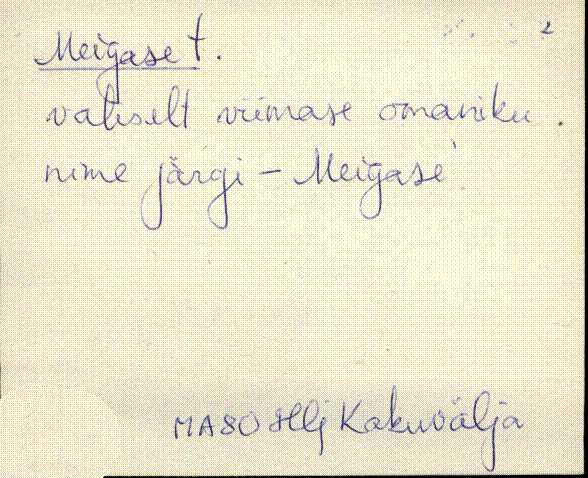 2
Meigase t.
vahselt viimase omaniku
nime järgi – Meigase
MASO Hlj Kakuvälja